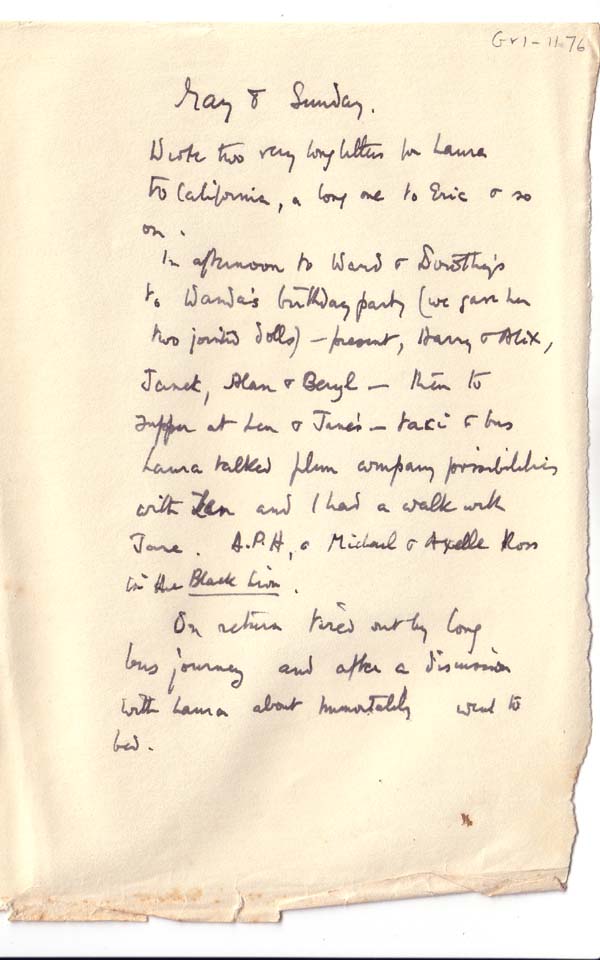 Gr1-11.76
May 8 Sunday.
Wrote two very long letters for Laura
to California, a long one to Eric & so
on.
In afternoon to Ward & Dorothy's
to Wanda's birthday party (we gave her
two jointed dolls) – present, Harry & Alix,
Janet, Alan & Beryl – then to
supper at Len & Jane's – taxi & bus
Laura talked film company possibilities
with Len and I had a walk with
Jane. A.P.H, & Michael & Axelle Ross
in the Black Lion.
On return tired out by long
bus journey and after a discussion
with Laura about immortality went to
bed.